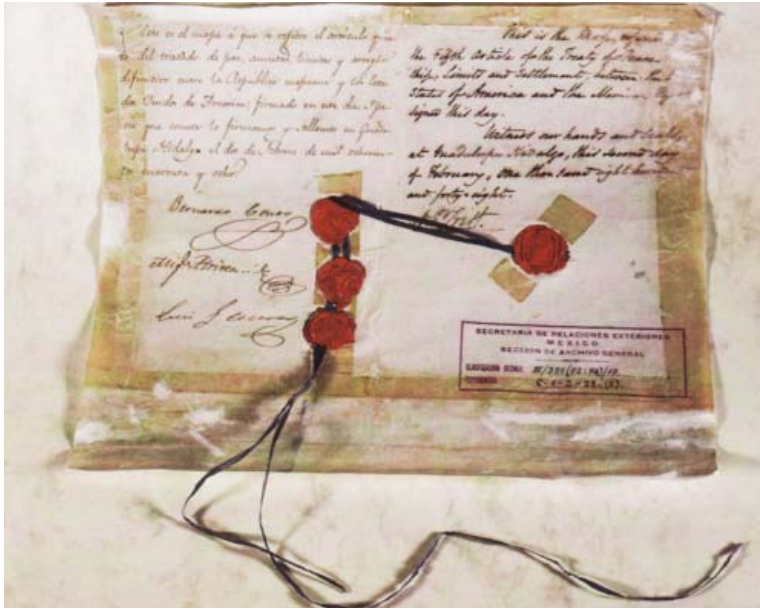 Este es el mapa á que se refiere el artículo quin
to del tratado de paz, amistad, límites y arreglo
definitivo entre la República mexicana y los Esta
dos Unidos de America; firmado en este dia
que lo firmamos y sellamos en Guada
lupe Hidalgo el dos de Febrero de mil ochocien
tos cuarenta y ocho.
Bernardo Couto
Luis G. Cuevas
This is the Map
the Fifth Article of the Treaty of Peace
ship, Limits and Settlement, between the
States of America and the Mexican
signed this day.
Witness our hands and Seals
at Guadalupe Hidalgo, this second day
of February, one thousand eight hundred
and forty-eight.
N.P. Trist.
SECRETARIA DE RELACIONES EXTERIORES
MEXICO
SECCION DE ARCHIVO GENERAL